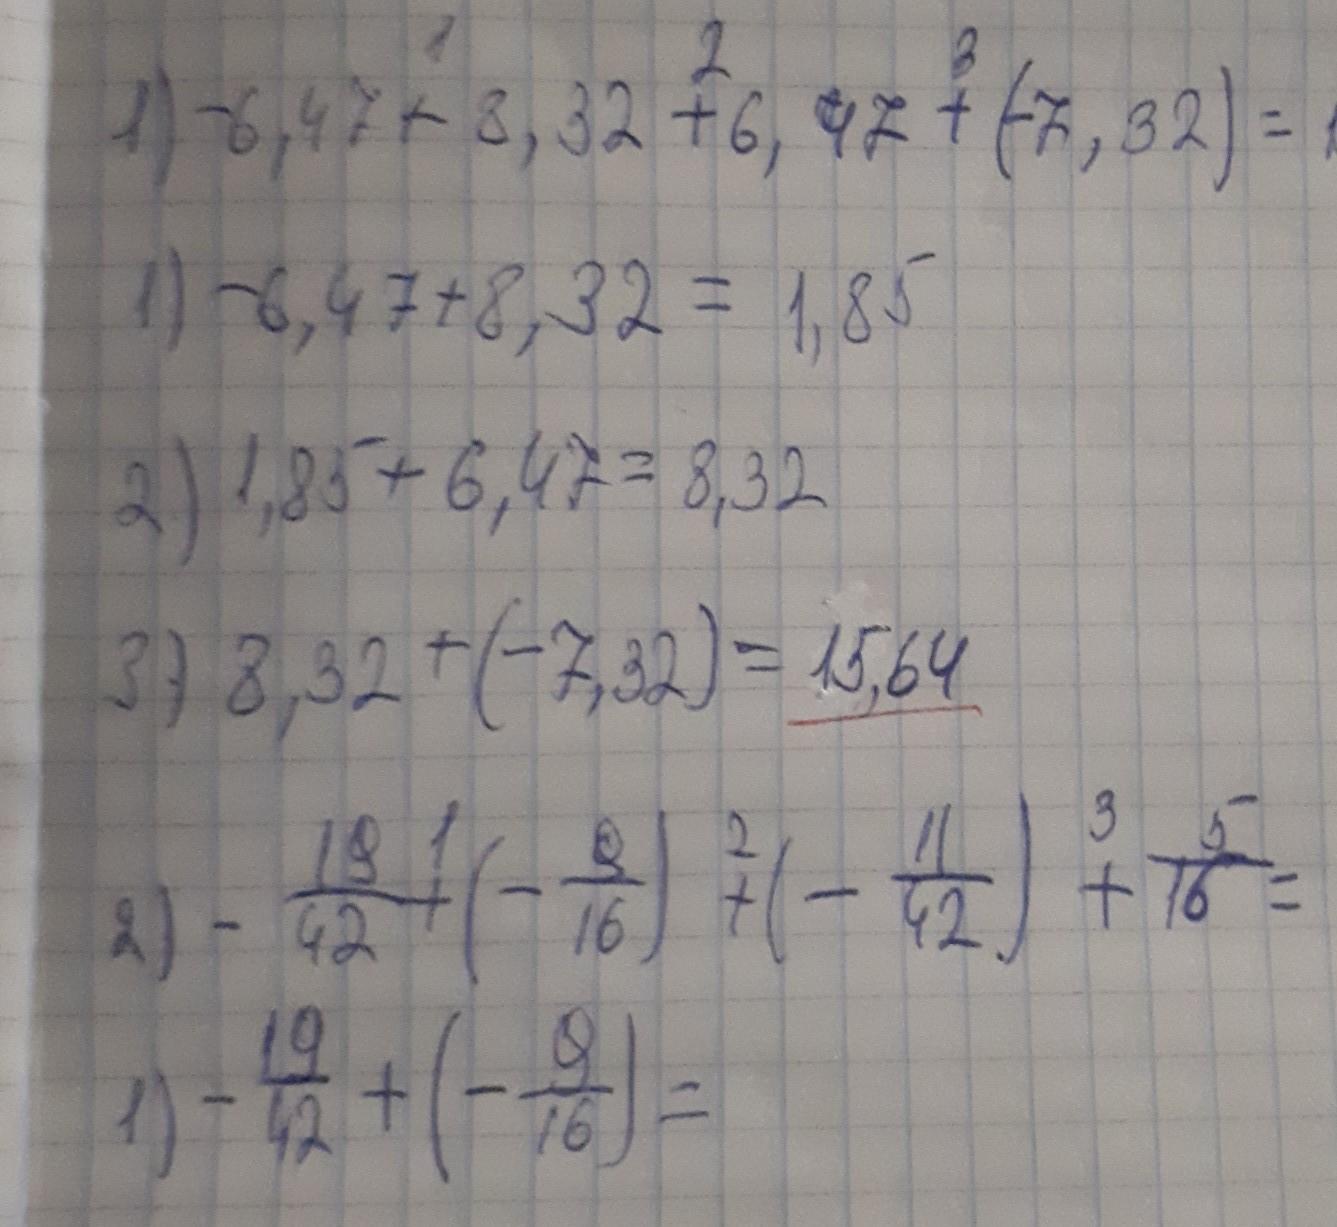 1 2 3
1) -6,47 + 8,32 + 6,47 + (-7,32) =
1) -6,47+8,32 = 1,85
2) 1,85 + 6,47 = 8,32
3) 8,32 + (-7,32) = 15,64
1 2 3
2) - 19/42 + (- 9/16) + (- 11/42) + 5/16 =
1) - 19/42 + (- 9/16) =